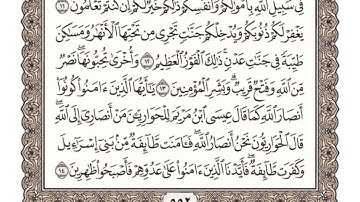 فِى سَبِيلِ ٱللَّهِ بِأَمْوَٰلِكُمْ وَأَنفُسِكُمْ ذَٰلِكُمْ خَيْرٌ لَّكُمْ إِن كُنتُمْ تَعْلَمُونَ ١١
يَغْفِرْ لَكُمْ ذُنُوبَكُمْ وَيُدْخِلْكُمْ جَنَّٰتٍ تَجْرِى مِن تَحْتِهَا ٱلْأَنْهَٰرُ وَمَسَٰكِنَ
طَيِّبَةً فِى جَنَّٰتِ عَدْنٍ ۚ ذَٰلِكَ ٱلْفَوْزُ ٱلْعَظِيمُ ١٢ وَأُخْرَىٰ تُحِبُّونَهَا ۖ نَصْرٌ
مِّنَ ٱللَّهِ وَفَتْحٌ قَرِيبٌ ۗ وَبَشِّرِ ٱلْمُؤْمِنِينَ ١٣ يَٰٓأَيُّهَا ٱلَّذِينَ ءَامَنُوا۟ كُونُوٓا۟
أَنصَارَ ٱللَّهِ كَمَا قَالَ عِيسَى ٱبْنُ مَرْيَمَ لِلْحَوَارِيِّـۧنَ مَنْ أَنصَارِىٓ إِلَى ٱللَّهِ ۖ
قَالَ ٱلْحَوَارِيُّونَ نَحْنُ أَنصَارُ ٱللَّهِ ۖ فَـَٔامَنَت طَّآئِفَةٌ مِّنۢ بَنِىٓ إِسْرَٰٓءِيلَ
وَكَفَرَت طَّآئِفَةٌ ۖ فَأَيَّدْنَا ٱلَّذِينَ ءَامَنُوا۟ عَلَىٰ عَدُوِّهِمْ فَأَصْبَحُوا۟ ظَٰهِرِينَ ١٤
٥٥٢